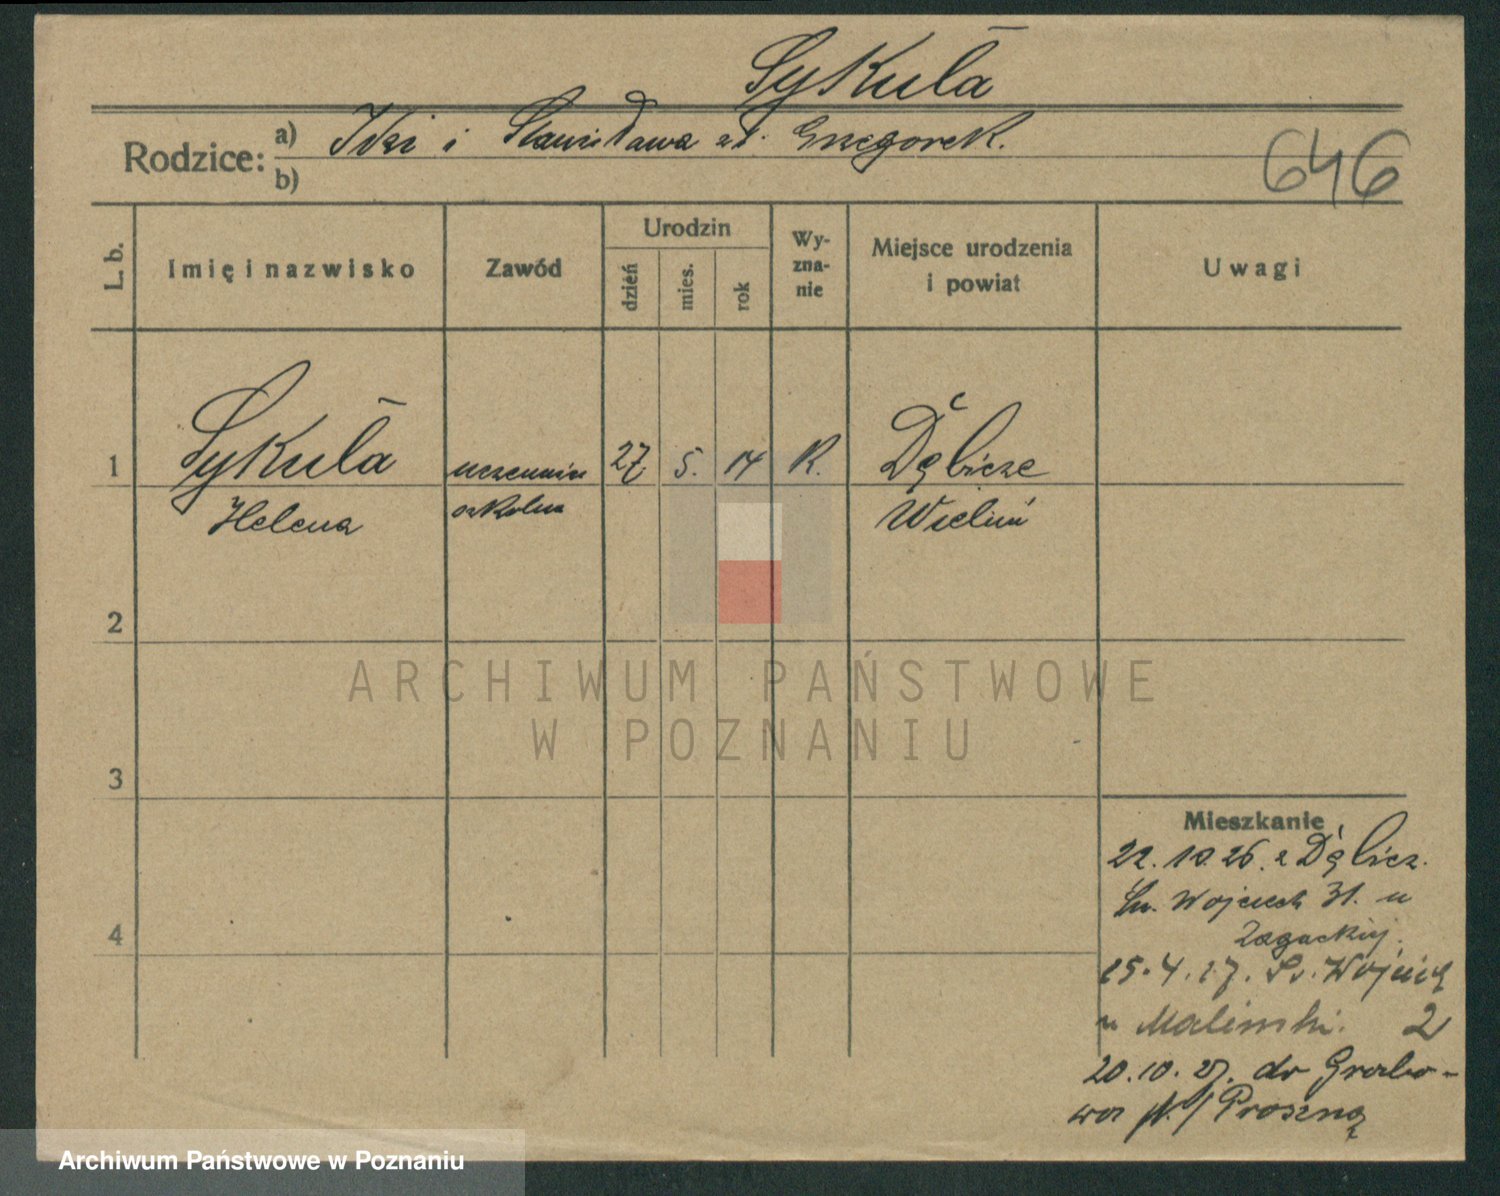 Sykuła
Rodzice:
a) Idzi i Stanisława zd. Grzegorek.
b)
646
L. b.
Imię i nazwisko
Zawód
Urodzin
dzień
mies.
rok
Wy-
zna-
nie
Miejsce urodzenia
i powiat
Uwagi
1
Sykuła
Helena
uczennica
szkolna
27
5.
14
R.
Dąbicze
Wieluń
2
3
4
ARCHIWUM PAŃSTWOWE
W POZNANIU
Mieszkanie
22.10.26. z Dąbicz.
Św. Wojciech 31. u
Zagackiej.
25.4.27. Św. Wojciech
u Malinski. 2
20.10.27. do Grabo-
wa n./Prosną
Archiwum Państwowe w Poznaniu